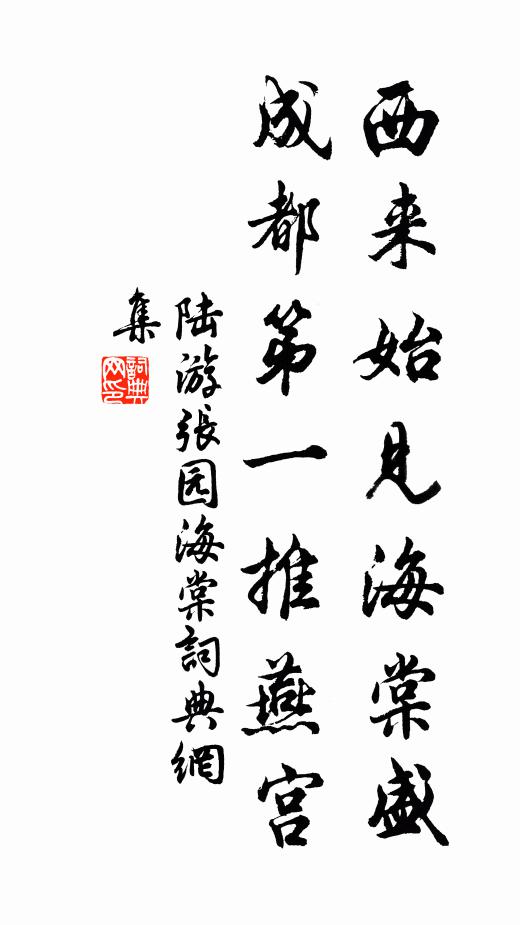 西来始见海棠盛
成都第一推燕宫
陆游张园海棠詞典網
集
詞典
网印